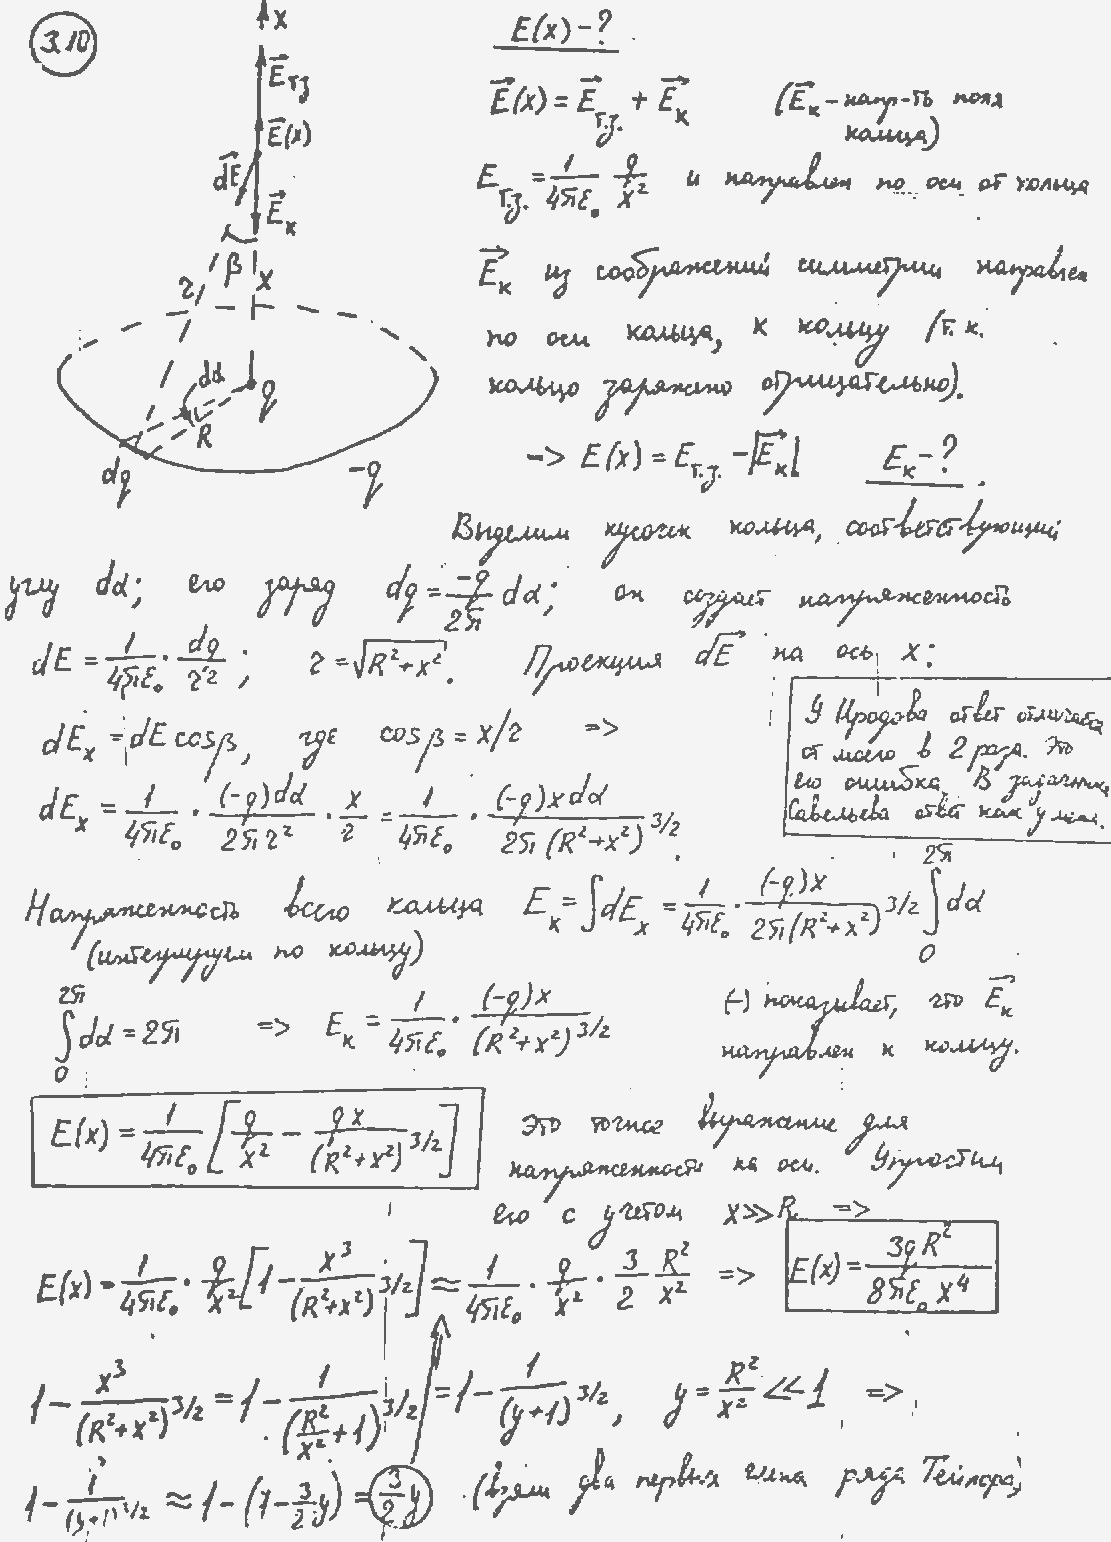 3.10
x
E⃗т.з
E⃗(x)
dE⃗
E⃗к
β
x
r
dα
q
R
dq
-q
E(x) - ?
E⃗(x) = E⃗т.з. + E⃗к (E⃗к - напр-ть поля
кольца)
Eт.з. = 1/4πε₀ q/x² и направлен по оси от кольца
E⃗к из соображений симметрии направлен
по оси кольца, к кольцу (т.к.
кольцо заряжено отрицательно).
=> E(x) = Eт.з. - |E⃗к| Eк - ?
Выделим кусочек кольца, соответствующий
углу dα; его заряд dq = -q/2π dα; он создает напряженность
dE = 1/4πε₀ · dq/r²; r = √(R² + x²). Проекция dE⃗ на ось x:
dEx = dE cosβ, где cosβ = x/r =>
У Иродова ответ отличается
от моего в 2 раза. Это
его ошибка. В задачнике
Савельева ответ как у меня.
dEx = 1/4πε₀ · (-q)dα/2πr² · x/r = 1/4πε₀ · (-q)x dα/2π(R² + x²)^3/2.
Напряженность всего кольца Eк = ∫dEx = 1/4πε₀ · (-q)x/2π(R² + x²)^3/2 ∫₀^2π dα
(интегрируем по кольцу)
∫₀^2π dα = 2π => Eк = 1/4πε₀ · (-q)x/(R² + x²)^3/2 (-) показывает, что E⃗к
направлен к кольцу.
E(x) = 1/4πε₀ [q/x² - qx/(R² + x²)^3/2] Это точное выражение для
напряженности на оси. Упростим
его с учетом x >> R =>
E(x) = 1/4πε₀ · q/x² [1 - x³/(R² + x²)^3/2] ≈ 1/4πε₀ · q/x² · 3/2 R²/x² => E(x) = 3qR²/8πε₀x⁴
1 - x³/(R² + x²)^3/2 = 1 - 1/(R²/x² + 1)^3/2 = 1 - 1/(y + 1)^3/2, y = R²/x² << 1 =>
1 - 1/(y + 1)^3/2 ≈ 1 - (1 - 3/2 y) = 3/2 y (взяли два первых члена ряда Тейлора)